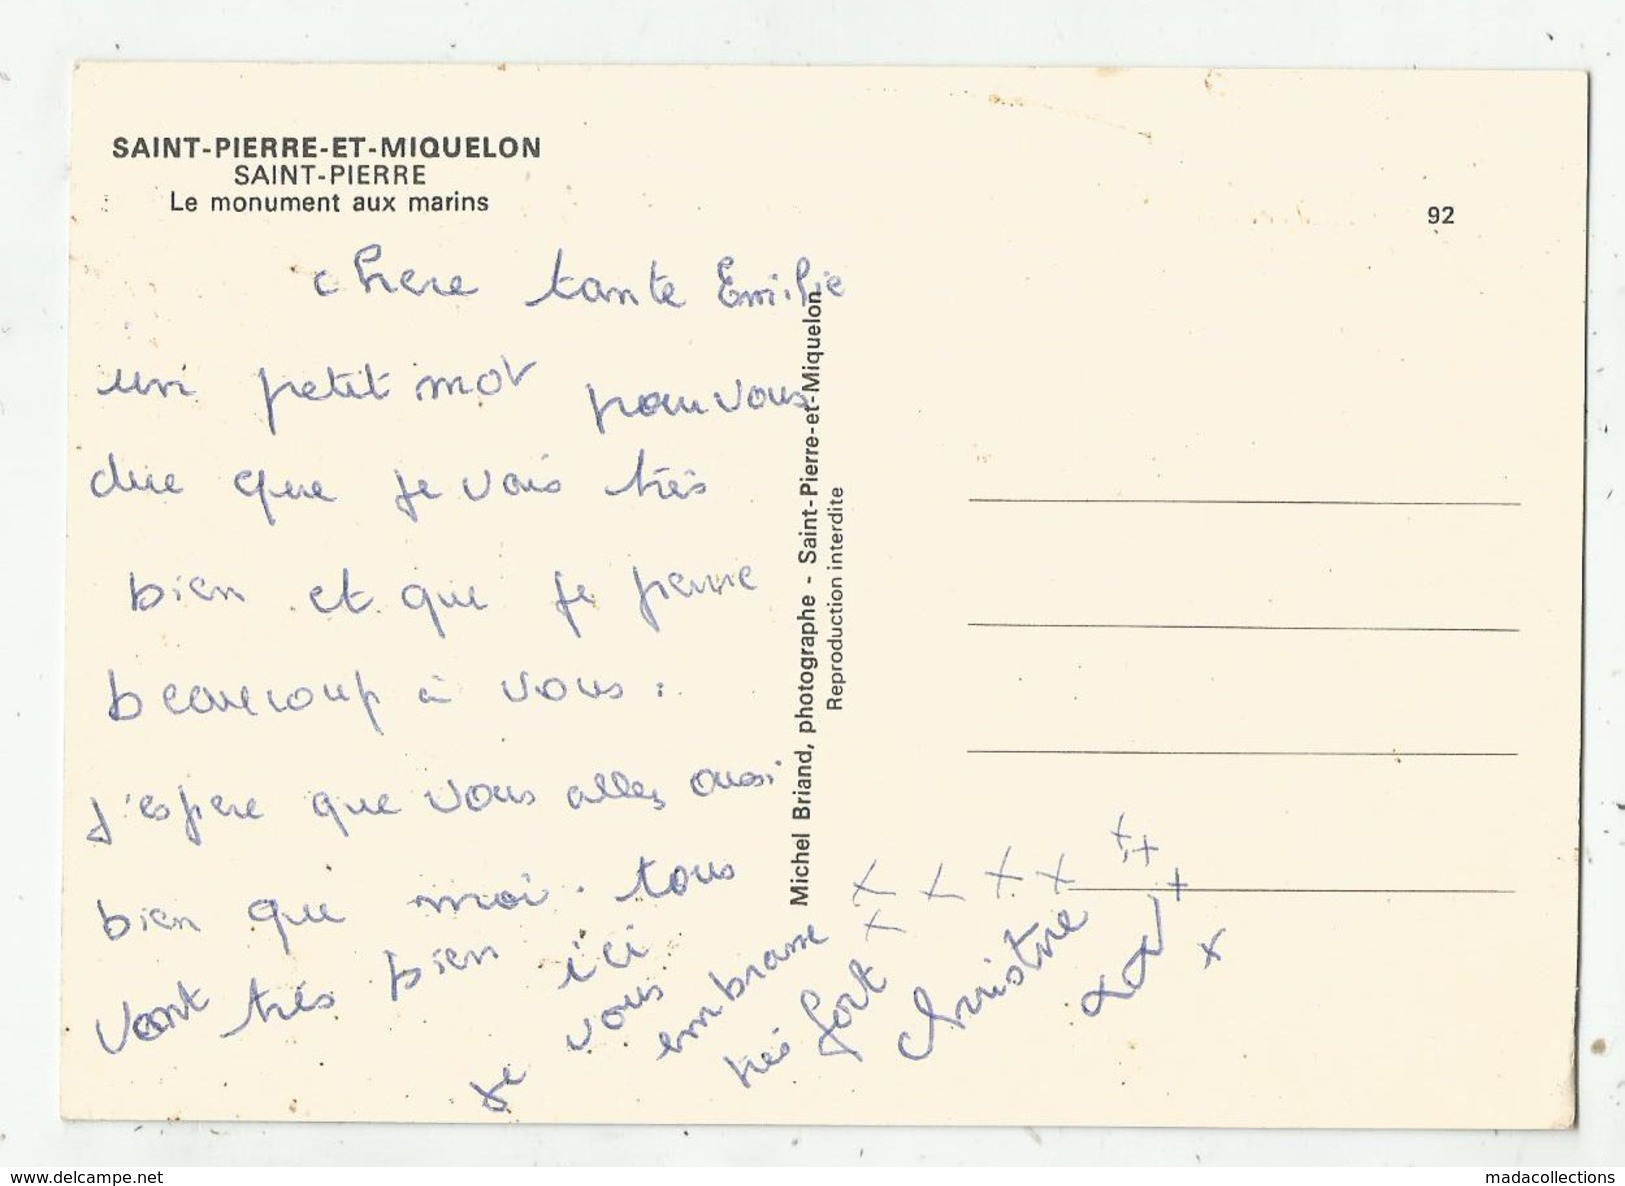 SAINT-PIERRE-ET-MIQUELON
SAINT-PIERRE
Le monument aux marins
92
chere tante Emilie
un petit mot pour vous
dire que je vais très
bien et que je pense
beaucoup à vous.
j'espere que vous allez aussi
bien que moi. tous
vont très bien ici
je vous
embrasse
très fort
christine
Michel Briand, photographe - Saint-Pierre-et-Miquelon
Reproduction interdite
delcampe.net
madacollections